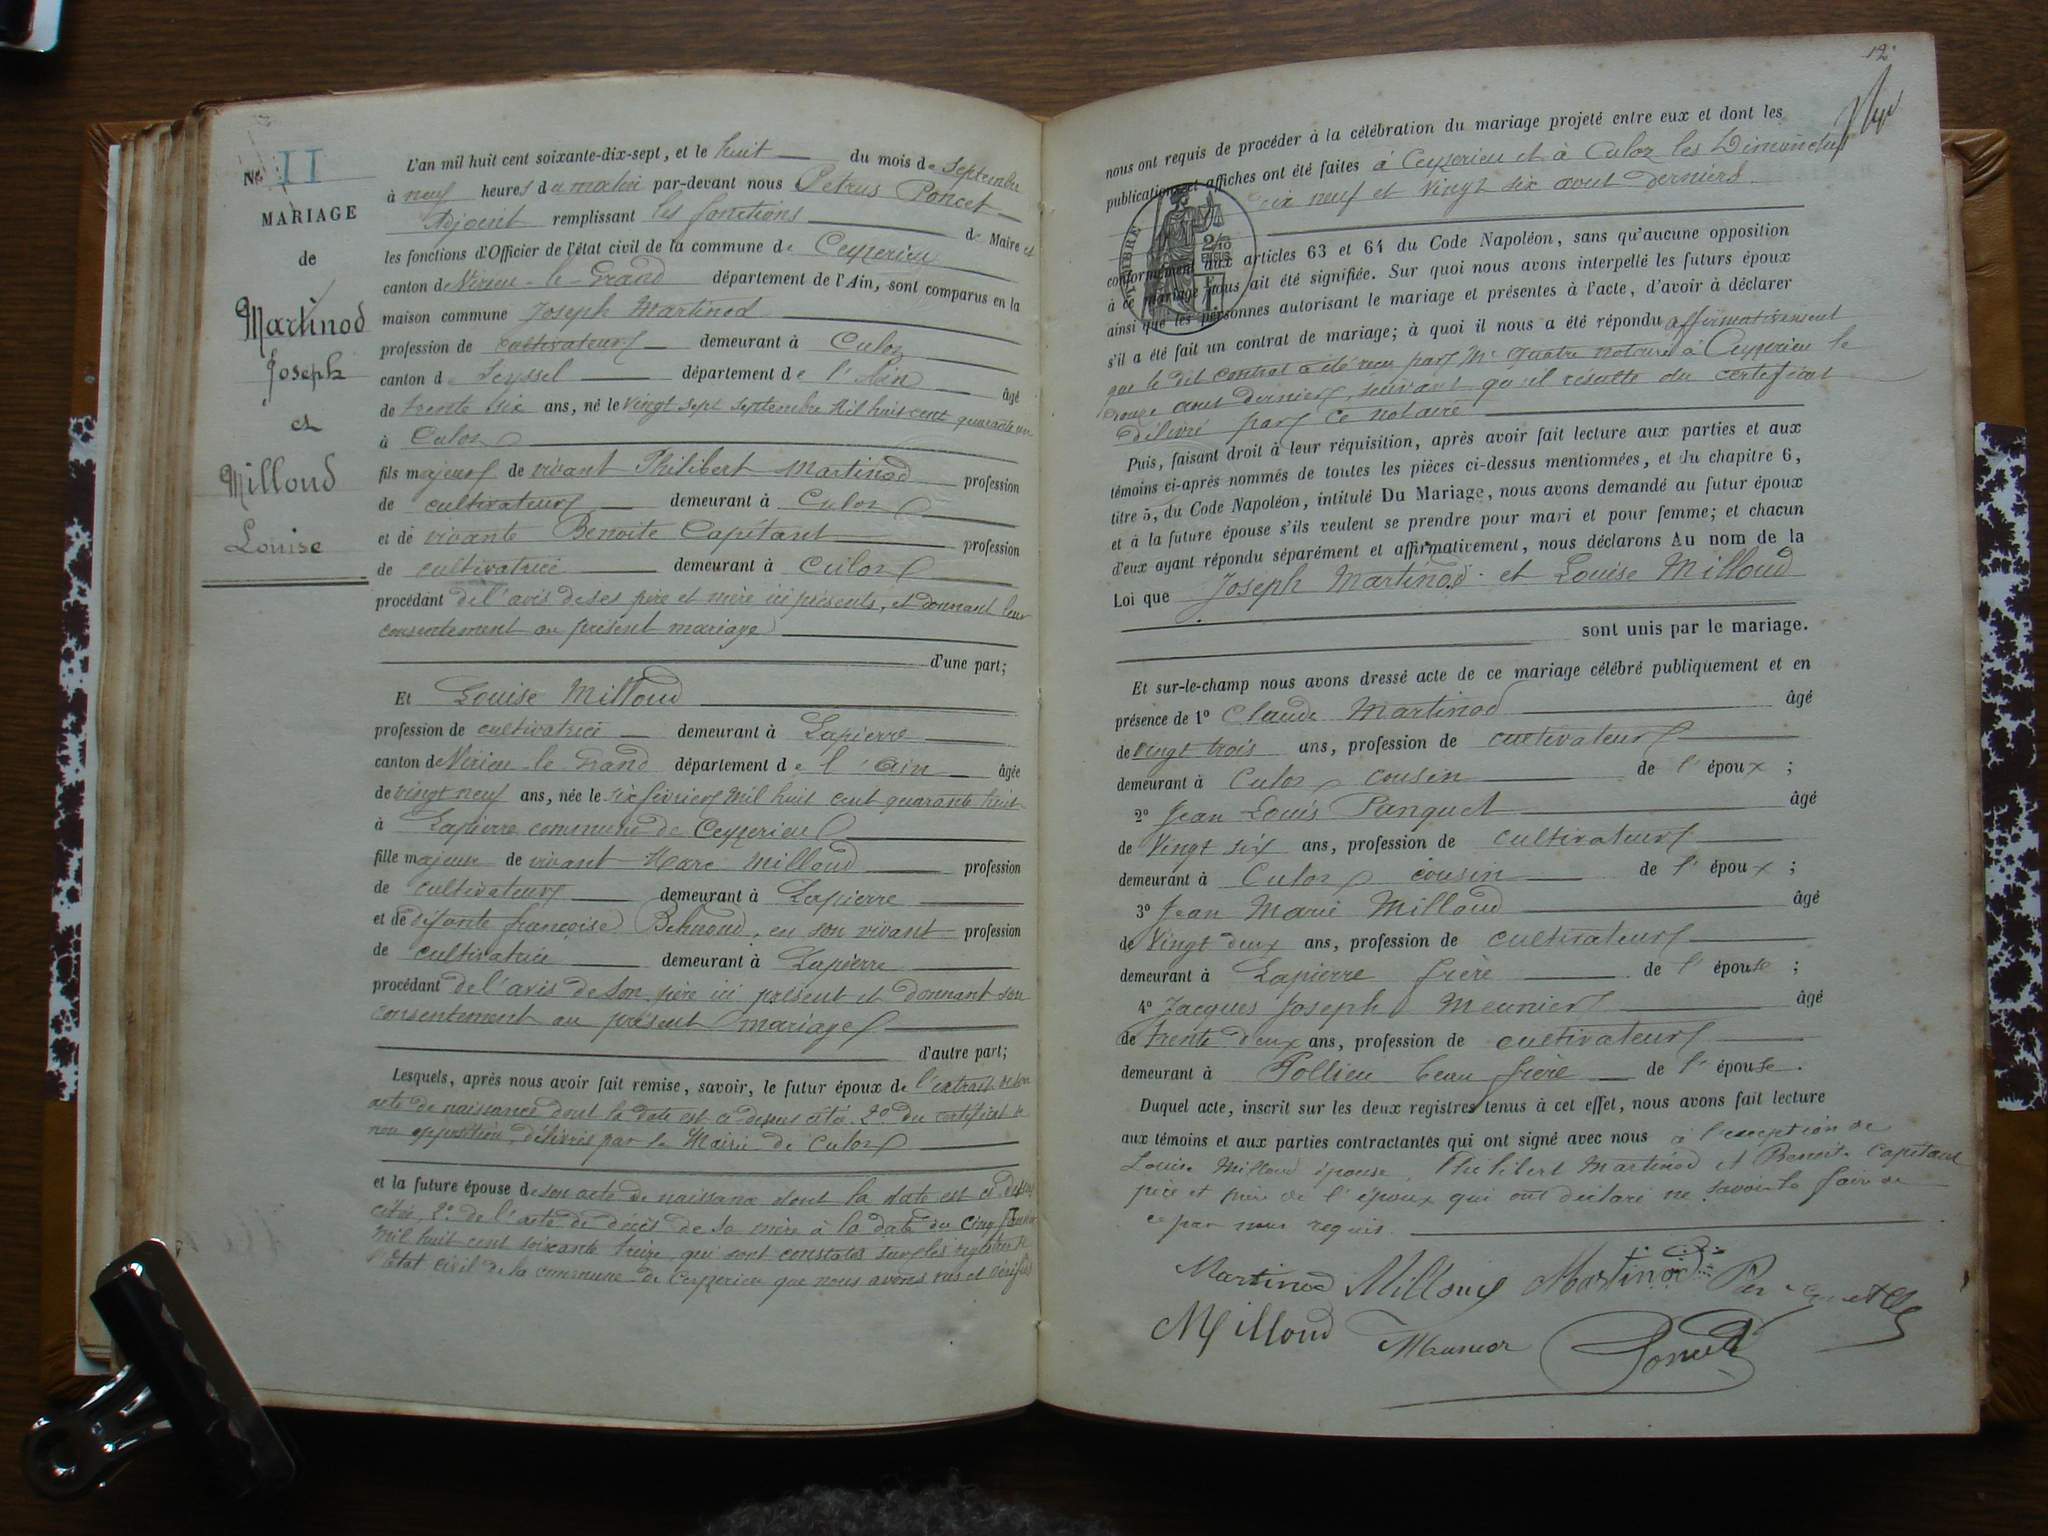 No II
MARIAGE
de
Martinod
Joseph
et
Milloud
Louise
L'an mil huit cent soixante-dix-sept, et le huit du mois de Septembre
à neuf heures du matin par-devant nous Petrus Poncet
Adjoint remplissant les fonctions de Maire et
les fonctions d'Officier de l'état civil de la commune de Ceyzerieu
canton de Virieu-le-Grand département de l'Ain, sont comparus en la
maison commune Joseph Martinod
profession de cultivateur demeurant à Culoz
canton de Seyssel département de l'Ain âgé
de trente six ans, né le vingt sept septembre mil huit cent quarante un
à Culoz
fils majeur de vivant Philibert Martinod profession
de cultivateur demeurant à Culoz
et de vivante Benoite Capitant profession
de cultivatrice demeurant à Culoz
procédant de l'avis de ses père et mère ici présents, et donnant leur
consentement au présent mariage
d'une part;
Et Louise Milloud
profession de cultivatrice demeurant à Lapierre
canton de Virieu-le-Grand département de l'Ain âgée
de vingt neuf ans, née le six février mil huit cent quarante huit
à Lapierre commune de Ceyzerieu
fille majeure de vivant Marc Milloud profession
de cultivateur demeurant à Lapierre
et de défunte françoise en son vivant profession
de cultivatrice demeurant à Lapierre
procédant de l'avis de son père ici présent et donnant son
consentement au présent mariage
d'autre part;
Lesquels, après nous avoir fait remise, savoir, le futur époux de l'extrait de son
acte de naissance dont la date est ci-dessus citée 2o du certificat de
non opposition délivrés par la Mairie de Culoz
et la future épouse de son acte de naissance dont la date est ci-dessus
citée, 2o de l'acte de décès de sa mère à la date du cinq
mil huit cent soixante treize qui sont constatés sur les registres de
l'état civil de la commune de Ceyzerieu que nous avons vus et vérifiés
12
nous ont requis de procéder à la célébration du mariage projeté entre eux et dont les
publications et affiches ont été faites à Ceyzerieu et à Culoz les Dimanches
dix neuf et vingt six aout derniers
TIMBRE
2/10
conformément aux articles 63 et 64 du Code Napoléon, sans qu'aucune opposition
à ce mariage nous ait été signifiée. Sur quoi nous avons interpellé les futurs époux
ainsi que les personnes autorisant le mariage et présentes à l'acte, d'avoir à déclarer
s'il a été fait un contrat de mariage; à quoi il nous a été répondu affirmativement
que le dit contrat a été reçu par Me notaire à Ceyzerieu le
douze aout dernier, suivant qu'il résulte du certificat
délivré par ce notaire
Puis, faisant droit à leur réquisition, après avoir fait lecture aux parties et aux
témoins ci-après nommés de toutes les pièces ci-dessus mentionnées, et du chapitre 6,
titre 5, du Code Napoléon, intitulé Du Mariage, nous avons demandé au futur époux
et à la future épouse s'ils veulent se prendre pour mari et pour femme; et chacun
d'eux ayant répondu séparément et affirmativement, nous déclarons Au nom de la
Loi que Joseph Martinod et Louise Milloud
sont unis par le mariage.
Et sur-le-champ nous avons dressé acte de ce mariage célébré publiquement et en
présence de 1o Claude Martinod âgé
de vingt trois ans, profession de cultivateur
demeurant à Culoz cousin de l'époux;
2o Jean Louis Panquet âgé
de Vingt six ans, profession de cultivateur
demeurant à Culoz cousin de l'époux;
3o Jean Marie Milloud âgé
de Vingt deux ans, profession de cultivateur
demeurant à Lapierre frère de l'épouse;
4o Jacques Joseph Meunier âgé
de trente deux ans, profession de cultivateur
demeurant à Pollieu beau frère de l'épouse.
Duquel acte, inscrit sur les deux registres tenus à cet effet, nous avons fait lecture
aux témoins et aux parties contractantes qui ont signé avec nous à l'exception de
Louise Milloud épouse, Philibert Martinod et Benoite Capitant
père et mère de l'époux qui ont déclaré ne savoir le faire de
ce par nous requis.
Martinod Milloud Martinod Panquet
Milloud Meunier Poncet